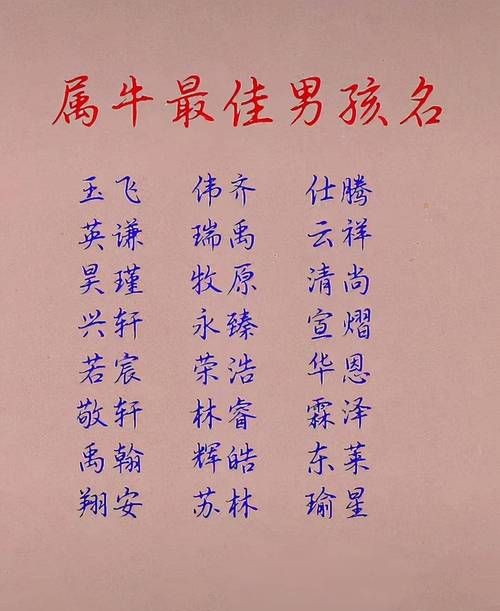 属牛最佳男孩名
玉飞 伟齐 仕腾
英谦 瑞禹 云祥
昊瑾 牧原 清尚
兴轩 永臻 宣熠
若宸 荣浩 华恩
敬轩 林睿 霖泽
禹翰 辉皓 东莱
翔安 苏林 瑜星